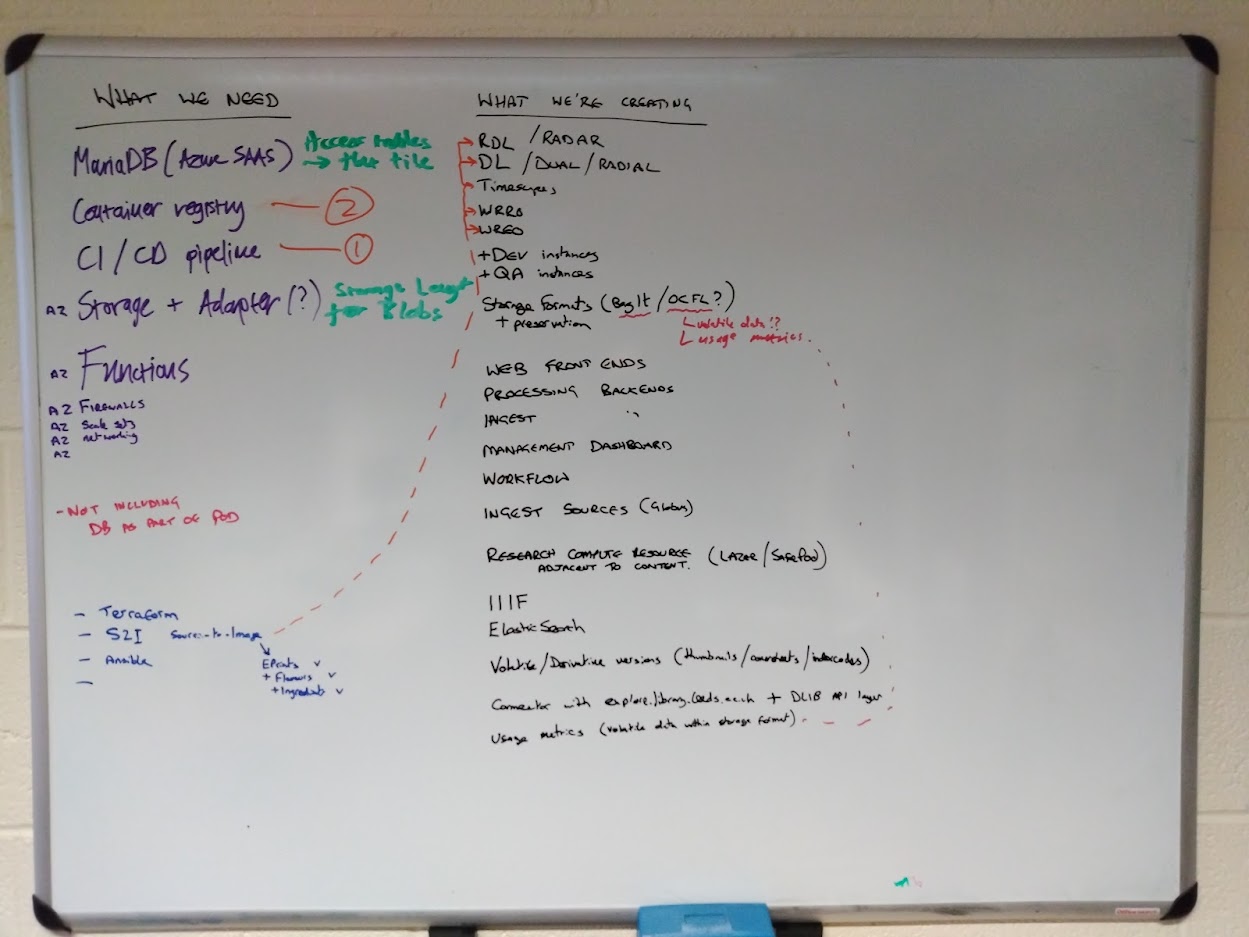 WHAT WE NEED
MariaDB (Azure SAAS)
Access tables
→ flat file
Container registry — 2
CI/CD pipeline — 1
AZ Storage + Adapter(?)
Storage
for Blobs
AZ Functions
AZ FIREWALLS
AZ Scale sets
AZ networking
AZ
- NOT INCLUDING
DB AS PART OF POD
- Terraform
- S2I Source-to-Image
- Ansible
-
EPrints ✓
+ Flavours ✓
+ Ingredients ✓
WHAT WE'RE CREATING
RDL / RADAR
DL / DUAL / RADIAL
Timescapes
WRRO
WREO
+ DEV instances
+ QA instances
Storage Formats (BagIt / OCFL?)
+ preservation
volatile data!?
usage metrics.
WEB FRONT ENDS
PROCESSING BACKENDS
INGEST "
MANAGEMENT DASHBOARD
WORKFLOW
INGEST SOURCES (Globus)
RESEARCH COMPUTE RESOURCE (LAZAR/SafePod)
ADJACENT TO CONTENT.
IIIF
ElasticSearch
Volatile/Derivative versions (thumbnails/coversheets/indexcodes)
Connector with explore.library.leeds.ac.uk + DLIB API layer
Usage metrics (volatile data within storage format)